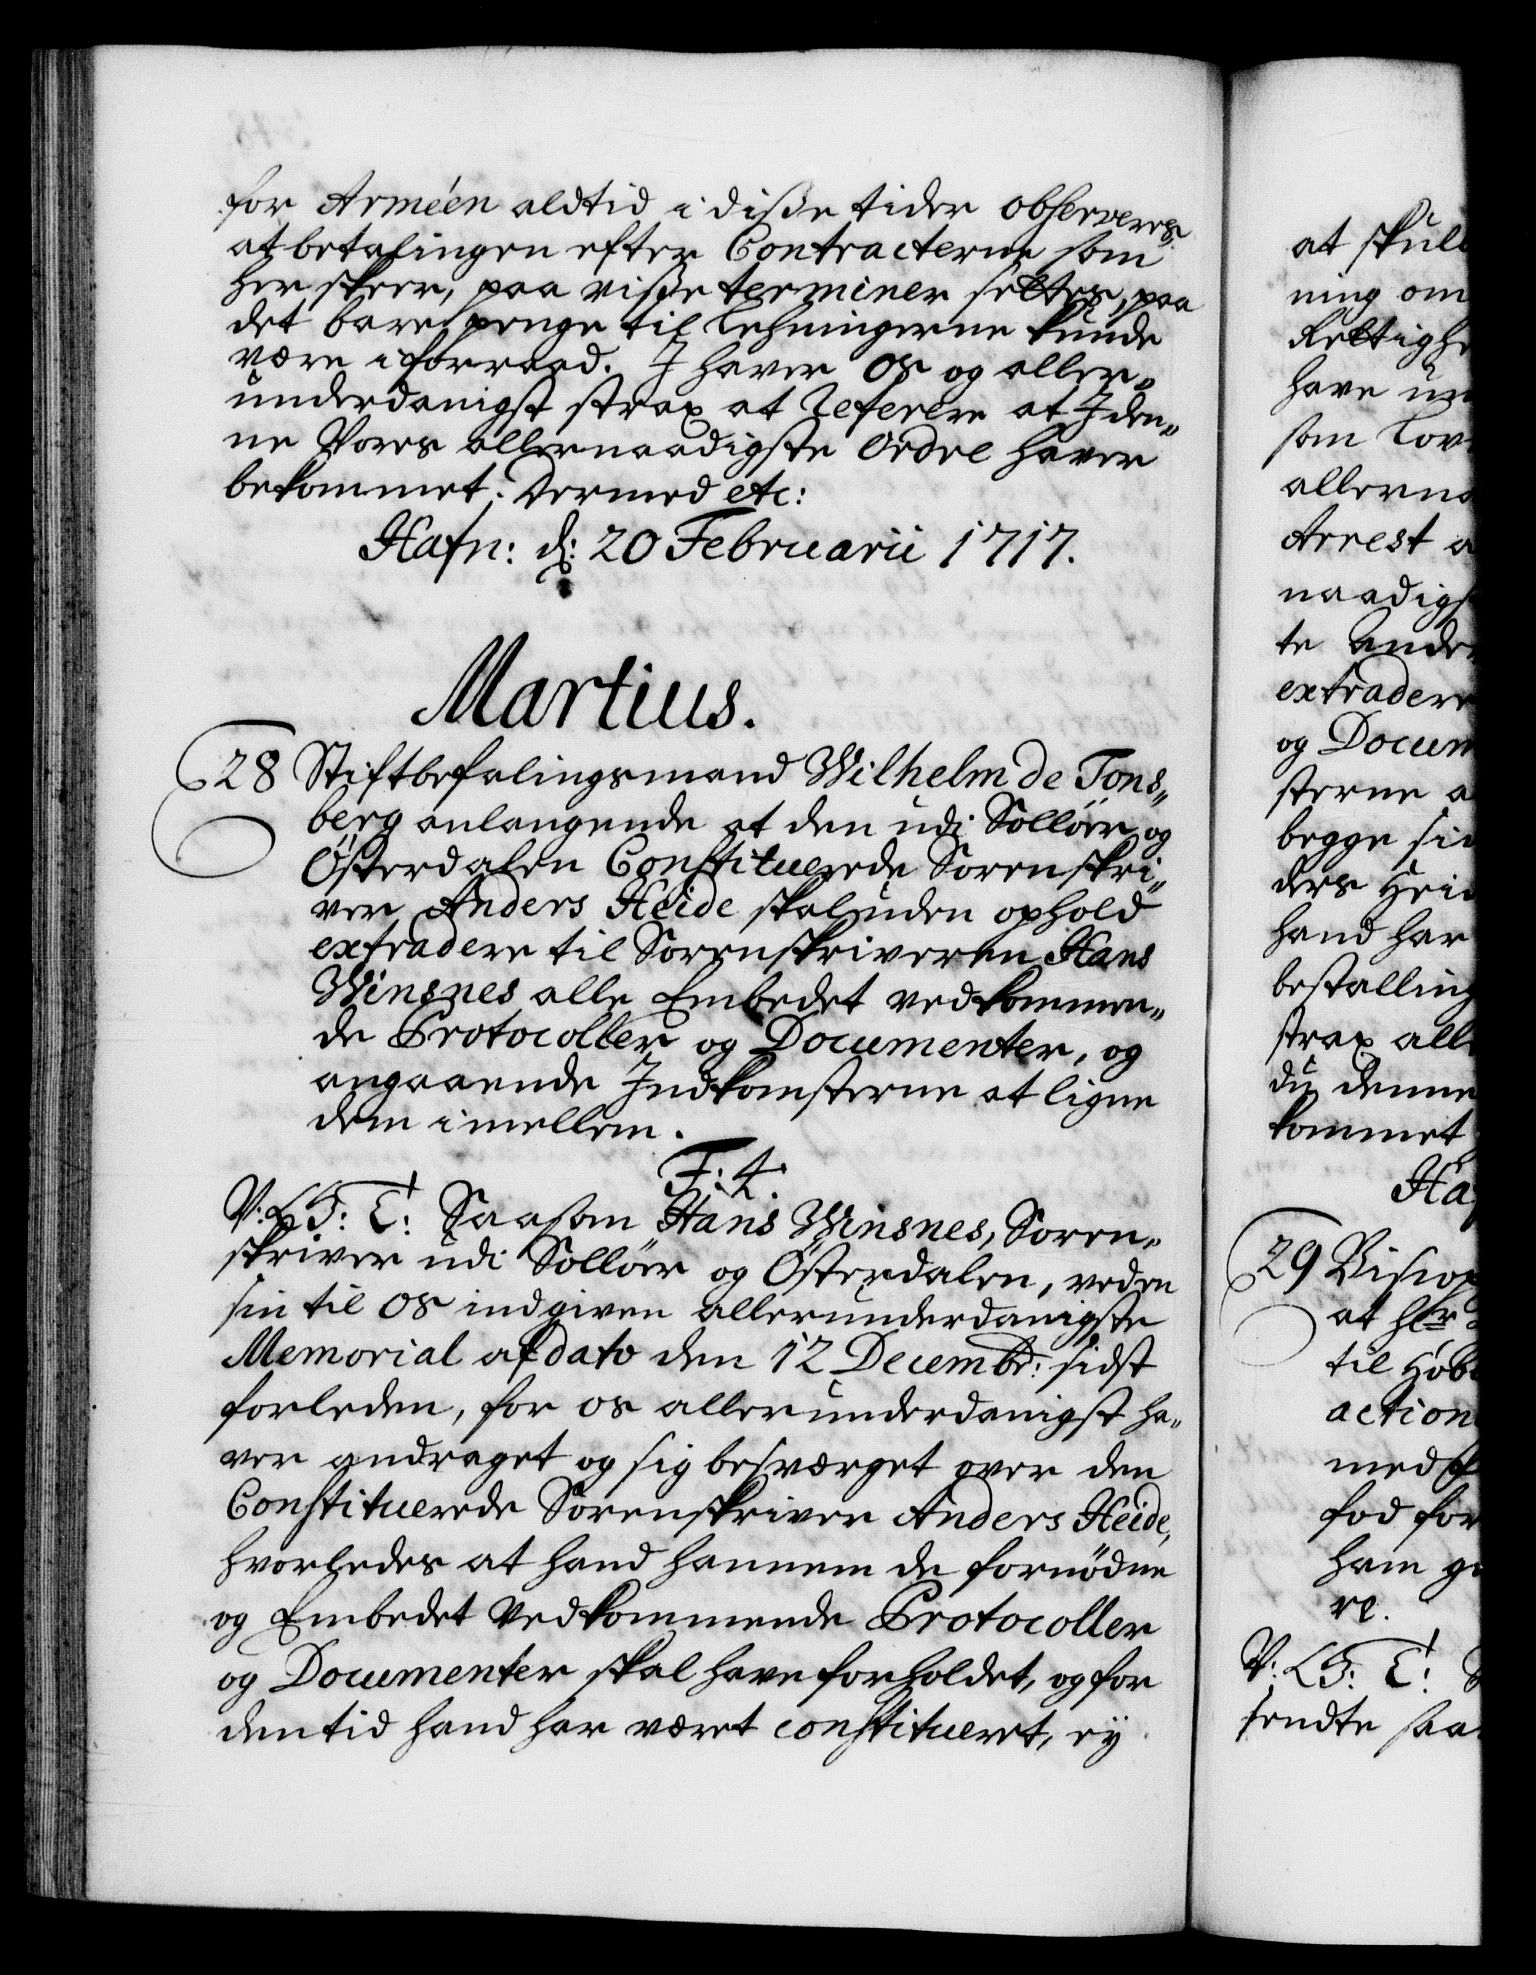 for Arméen altid i disse tider observeres
at betalingen efter Contracterne som
her skeer, paa visse terminer settes, paa
det bare penge til Lehningerne kunde
være i forraad. I haver os og aller„
underdanigst strax at referere at I den„
ne Vores allernaadigste Ordre haver
bekommet. Dermed etc:
Hafn: d: 20 Februarii 1717.
Martius.
28 Stiftbefalingsmand Wilhelm de Tons„
berg anlangende at den udi Sollöer og
Österdalen Constituerede Sorenskri„
ver Anders Heide skal uden ophold
extradere til Sorenskriveren Hans
Winsnes alle Embedet vedkommen„
de Protocoller og Documenter, og
angaaende Indkomsterne at ligne
dem imellem.
F: 4.
V: G: T: Saasom Hans Winsnes, Soren„
skriver udi Sollöer og Österdalen, veden
sin til os indgiven allerunderdanigste
Memorial af dato den 12 Decembr: sidst
forleden, for os allerunderdanigst ha„
ver andraget og sig besværget over den
Constituerede Sorenskriver Anders Heide,
hvorledes at hand hannem de fornödne
og Embedet Vedkommende Protocoller
og Documenter skal have forholdet, og for
den tid hand har været constitueret, ey
at skull
ning om
Rettighe
have un
som Lov
allerna
Arrest a
naadigs
te Ander
extradere
og Docum
sterne a
begge sid
ders Heid
hand har
bestalling
strax alle
du denne
kommet
Haf
29 Biskop
at hr
til
action
med
fod for
ham
re.
V: G: T:
sendte saa